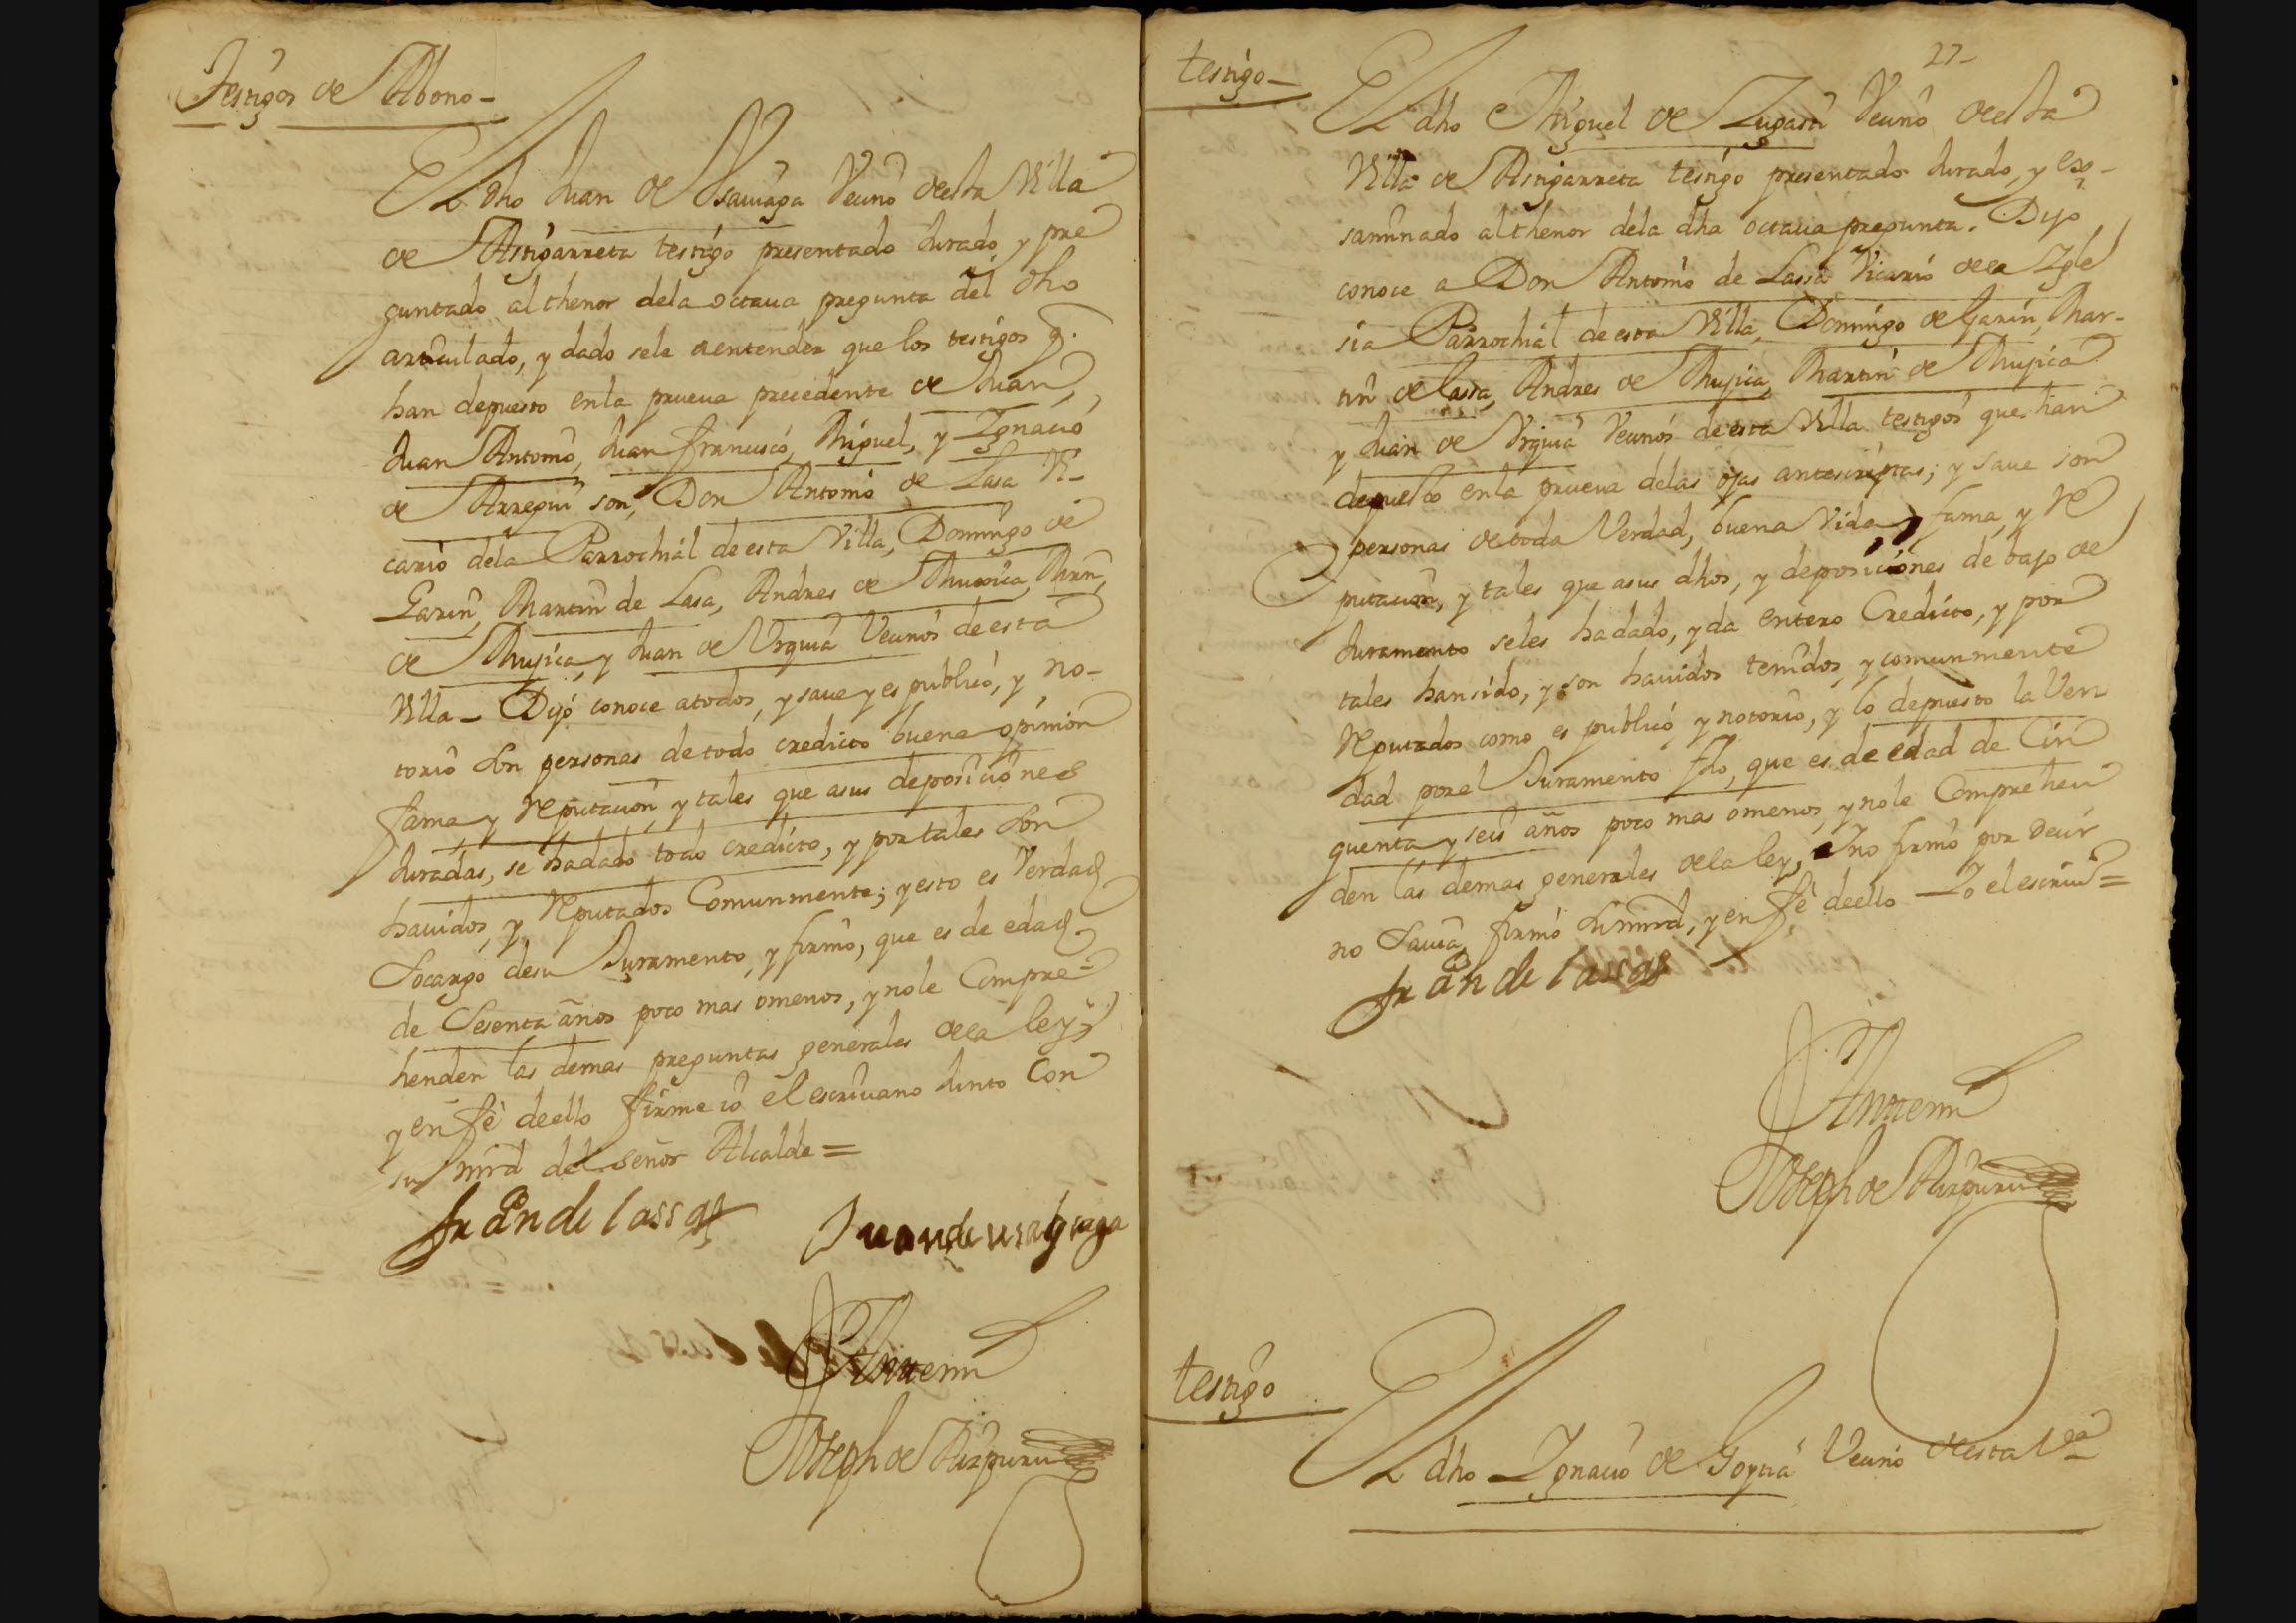 Testigos de Abono -
El dho Juan de Vsauiaga Vecino desta Villa
de Astigarreta testigo presentado Jurado, y pre
guntado al thenor dela octaua pregunta del dho
articulado, y dado sele aentender que los testigos q.
han depuesto enla prueua precedente de Juan,
Juan Antonio, Juan francisco, Miguel, y Ignacio
de Arregui son, Don Antonio de Lasa Vi-
cario dela Parrochial deesta Villa, Domingo de
Garin, Martin de Lasa, Andres de Muxica, Mrn,
de Mujica, y Juan de Vrquia Vecinos deesta
Villa - Dijo conoce atodos, y saue y es publico, y no-
torio son personas detodo credicto buena opinion
fama, y Reputacion, y tales que asus deposiciones
Juradas, se hadado todo credicto, y portales son
hauidos, y Reputados Comunmente; y esto es Verdad
Socargo desu Juramento, y firmo, que es de edad
de Sesenta años poco mas omenos, y nole Compre=
henden las demas preguntas generales dela ley,
y en fe deello firme io el escriuano Junto Con
su mrd del señor Alcalde =
Juan de lassa
Juan de usabiaga
Antemi
Joseph de Aizpuru
27-
testigo -
El dho Miguel de Zugasti Vecino desta
Villa de Astigarreta testigo presentado Jurado, y exa-
saminado althenor dela dha octaua pregunta. Dijo
conoce a Don Antonio de Lassa Vicario dela Igle
sia Parrochial deesta Villa, Domingo de Garin, Mar-
tin de Lassa, Andres de Mujica, Martin de Mujica
y Juan de Vrquia Vecinos deesta Villa testigos que han
depuesto enla prueua delas ojas antescriptas; y saue son
personas detoda Verdad, buena Vida, fama, y Re
putacion, y tales que asus dhos, y deposiciones debajo de
Juramento seles hadado, y da entero Credicto, y por
tales hansido, y son hauidos tenidos, y comunmente
Reputados como es publico y notorio, y lo depuesto la Ver
dad porel Juramento fho, que es de edad de Cin
quenta y seis años poco mas omenos, y nole Comprehen
den las demas generales dela ley, Ino firmo por decir
no Sauia, firmo su mrd, y en fe deello Yo el escriuo =
Juan de lassa
Antemi
Joseph de Aizpuru
testigo
El dho Ignacio de Goytia Vecino desta Va